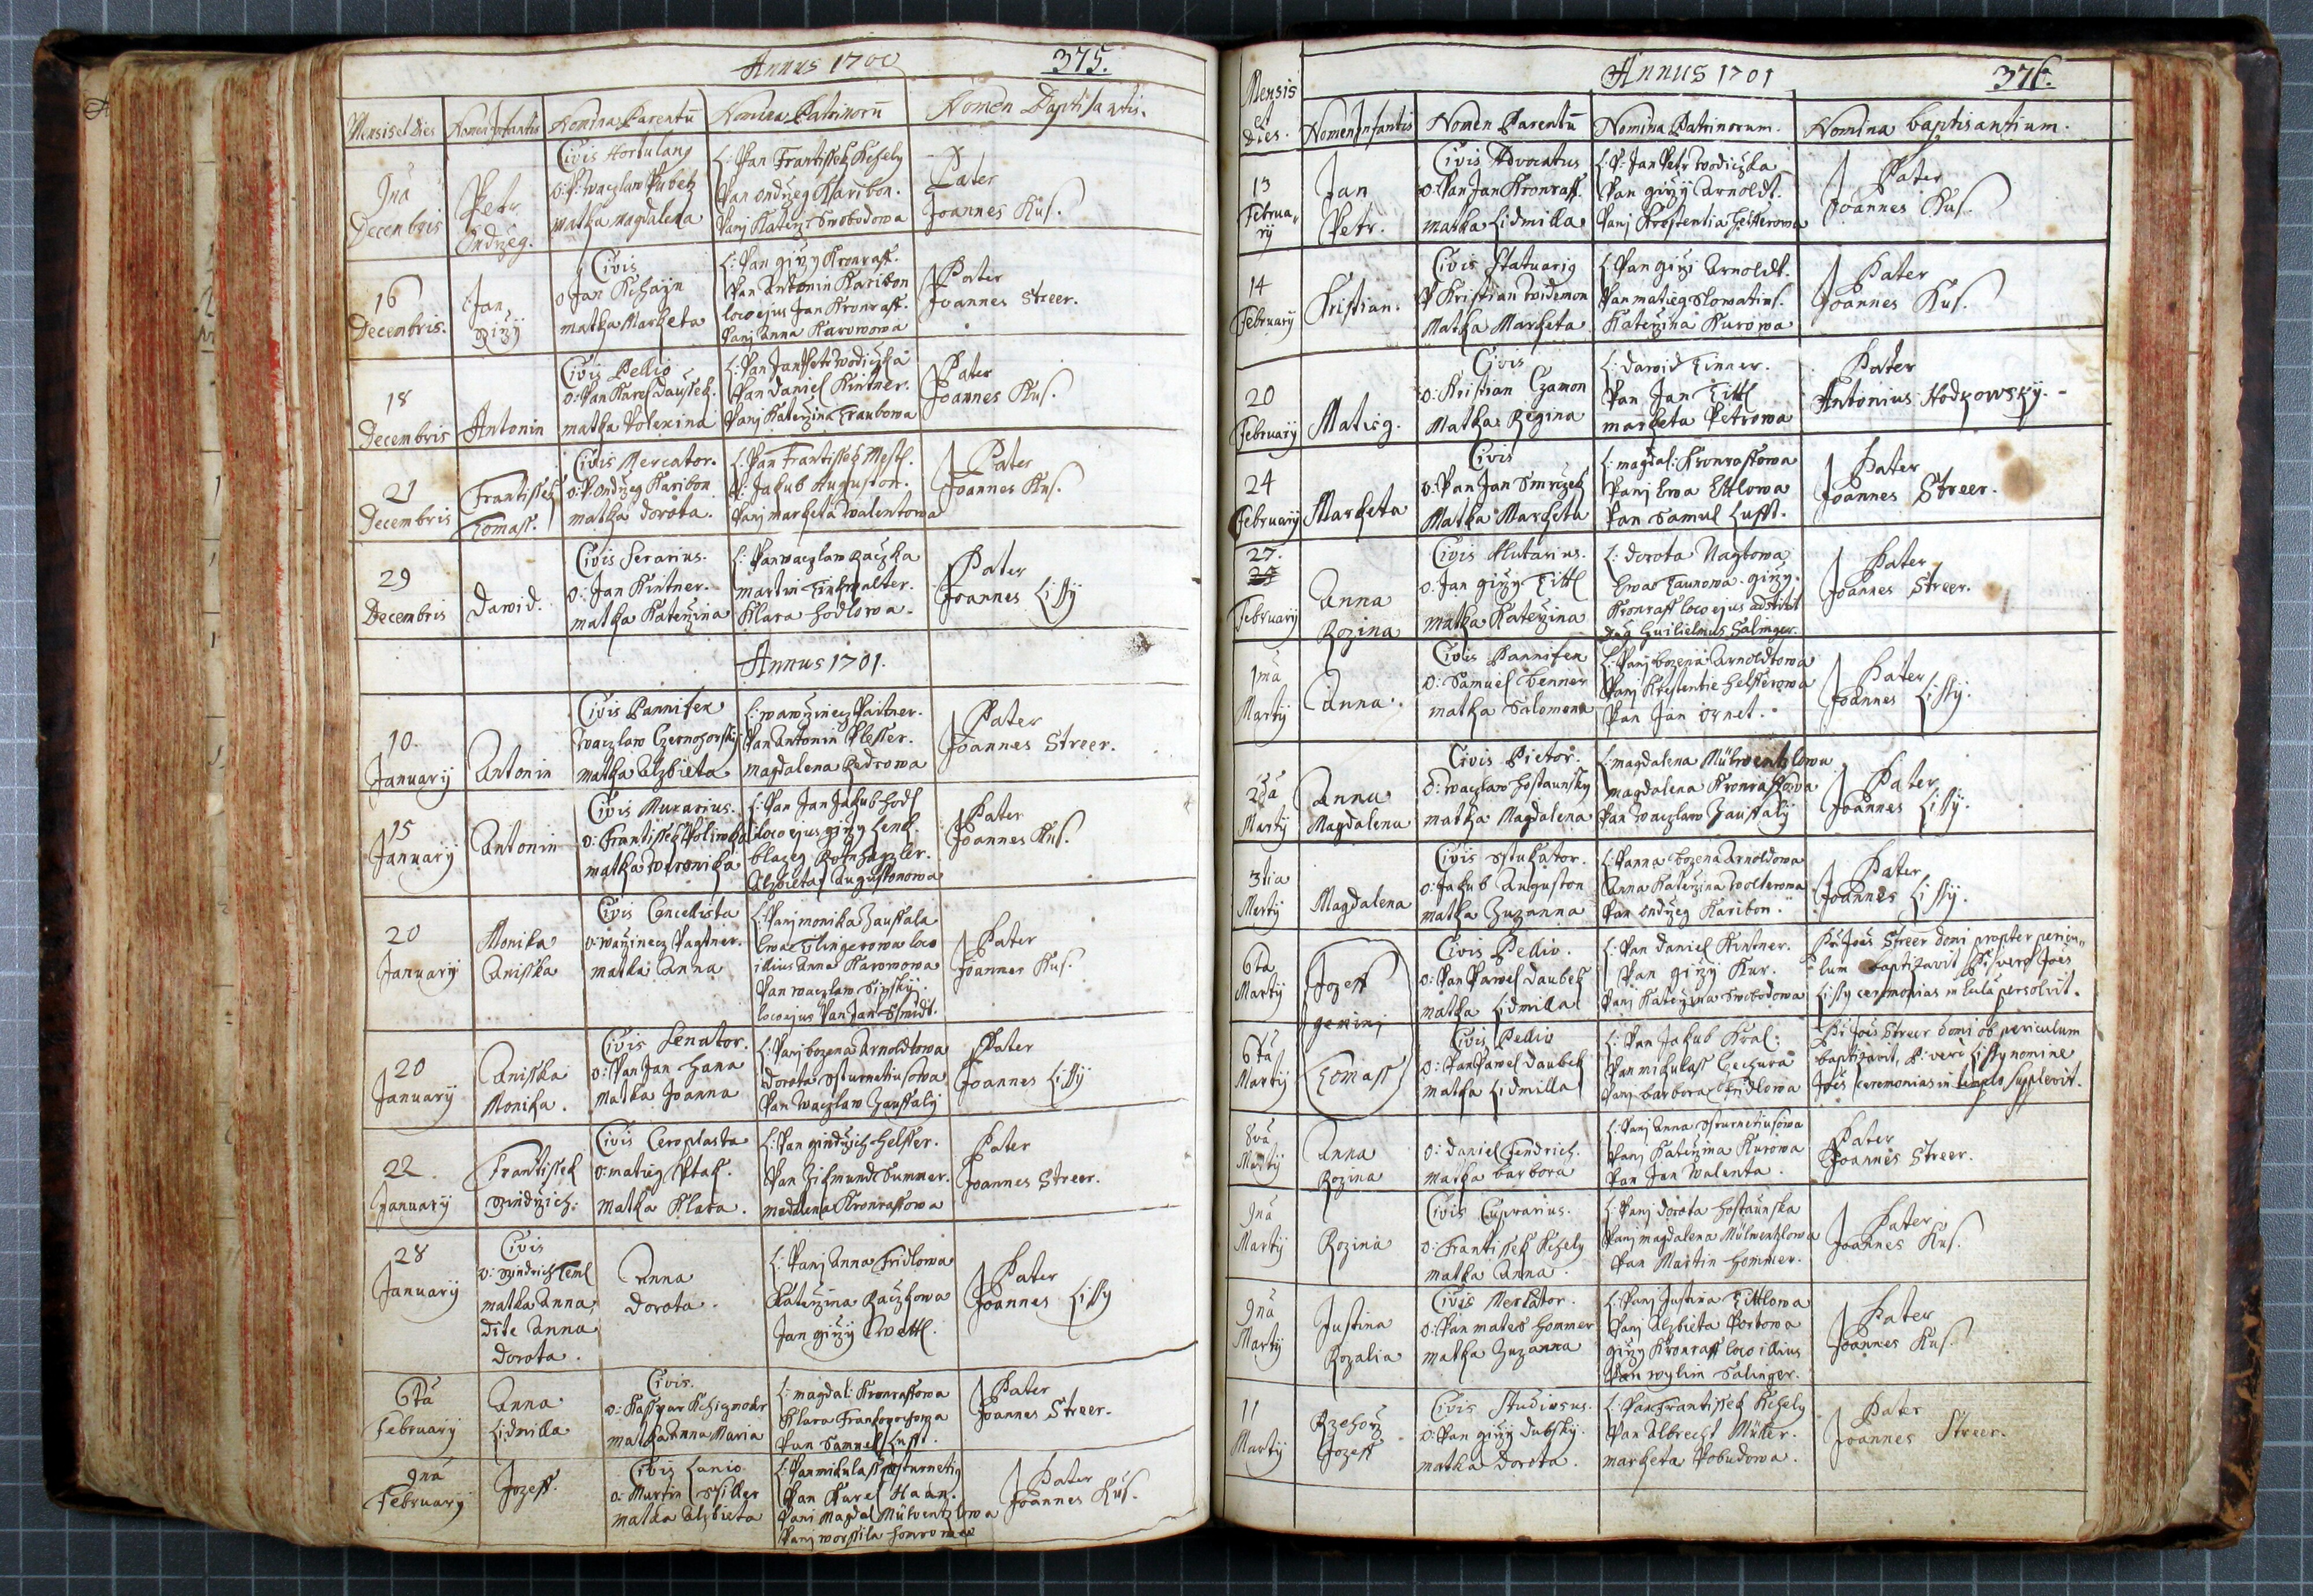 Annus 1700
375.
Mensis et dies
Nomen Infantis
Nomina Parentũ
Nomina Patrinorũ
Nomen Baptisantis.
9na
Decembris
Petr
Ondrzeg.
Civis Hortulanq
o: P: Waczlaw Kubetz
Matka Magdalena
L: Pan Frantissek Kchely
Pan Ondrzeg Karibon.
Panj Katerzi: Swobodowa
Pater
Joannes Kus.
16
Decembris.
Jan
Girzÿ
Civis
o Jan Kchayn
matka Marketa
L: Pan girzy Kronraff.
Pan Antonin Karibon
loco ejus Jan Kronraff.
Panj Anna Karowowa
Pater
Joannes Streer.
18
Decembris
Antonin
Civis Pellio
o: Pan Karel Daussek.
matka Polexina
L: Pan Jan Petr Wodiczka
Pan Daniel Kintner.
Panj Katerzina Traubowa
Pater
Joannes Kus.
21
Decembris
Frantissek
Tomass.
Civis Mercator.
o: P: Ondrzeg Karibon
matka Dorota.
L: Pan Frantissek Mestl.
P: Jakub Auguston.
Panj marketa Walentowa
Pater
Joannes Kus.
29
Decembris
Dawid.
Civis Serarius.
o: Jan Kintner.
matka Katerzina
L: Pan waczlaw Raczka
martin Tinkwalter.
Klara Hodlowa.
Pater
Joannes Lissÿ
Annus 1701.
10.
Januarÿ
Antonin
Civis Pannifex
Waczlaw Czernohorskÿ
matka Alzbieta
L: Wawrzinecz Paitner.
Pan Antonin Plesser.
Magdalena Pedrowa
Pater
Joannes Streer.
15
Januarÿ
Antonin
Civis Murarius.
o: Frantissek Poliwka
matka Weronika
L: Pan Jan Jakub Hodl
loco ejus girzy Lenk.
blazeg Rotnharzler.
Alzbieta Augustonowa
Pater
Joannes Kus.
20
Januarÿ
Monika
Anisska
Civis Cancellista
o: Wawrzinecz Pagtner.
matka Anna
L: Panj Monika Zaussala
Ewa Tlingerowa loco
illius Anna Karowowa
Pan waczlaw Sipskÿ.
loco ejus Pan Jan Smidt.
Pater
Joannes Kus.
20
Januarÿ
Anisska
Monika.
Civis Senator.
o: Pan Jan Hana
Matka Joanna
L: Panj bozena Arnoldtowa
Dorota Sturnetiusowa
Pan Waczlaw Zaussalÿ
Pater
Joannes Lissÿ
22.
Januarÿ
Frantissek
Gindrzich.
Civis Ceroplasta
o: Matieg Ptak.
Matka Klara.
L: Pan gindrzich Helffer.
Pan Zikmund Summer.
Madalena Kronraffowa
Pater
Joannes Streer.
28
Januarÿ
Civis
o: Gindrich Teml
matka Anna,
dite Anna
Dorota.
Anna
Dorota.
L: Panj Anna Fridlowa
Katerzina Raczkowa
Jan girzÿ Kwettl.
Pater
Joannes Lissÿ
6ta
February
Anna
Lidmilla
Civis.
o: Kasspar
matka Anna Maria
L: Magdal: Kronraffowa
Klara
Pan Samuel Lufft.
Pater
Joannes Streer.
9na
February
Jozeff.
Civis Lanio
o: Martin Spiller
matka Alzbieta
L: Pan mikulass Sturnetiq
Pan Karel Haan.
Panj Magdal Mühwentzlowa
Panj worssila
Pater
Joannes Kus.
Annus 1701
376.
Mensis
et
dies.
Nomen Infantis
Nomen Parentũ
Nomina Patrinorum.
Nomina baptisantium.
13
Februa„
rÿ
Jan
Petr.
Civis Advocatus
o: Pan Jan Kronraff.
matka Lidmilla
L: P: Jan Petr Wodiczka
Pan girzÿ Arnoldt.
Panj Krestentia Helfferowa
Pater
Joannes Kus.
14
Februarÿ
Kristian.
Civis Statuariq
P Kristian Widemon
Matka Marketa
L: Pan girzi Arnoldt.
Pan matieg Slowatins.
Katerzina Kurowa
Pater
Joannes Kus.
20
Februarÿ
Matieg.
Civis
o: Kristian Czamon
Matka Regina
L: dawid Tinner.
Pan Jan Tittl
marketa Petrowa
Pater
Antonius Hodkowskÿ.
24
Februarÿ
Marketa
Civis
o: Pan Jan Smrczek
Matka Marketa
L: magdal: Kronraffowa
Panj Ewa Ettlowa
Pan Samuel Lufft.
Pater
Joannes Streer.
27.
Februarÿ
Anna
Rozina
Civis Alutarius.
o: Jan girzy Tittl
matka Katerzina
L: Dorota Nagtowa
Ewa Taunowa. girzy.
Kronraff loco ejus adstitit
Dnq Guilielmus Salinger.
Pater
Joannes Streer.
1ma
Martÿ
Anna.
Civis Pannifex
o: Samuel Benner
matka Salomena
L: Panj bozena Arnoldtowa
Panj Krestentie Helfferowa
Pan Jan Ornet.
Pater
Joannes Lissÿ.
2da
Martÿ
Anna
Magdalena
Civis Pictor.
o: waczlaw Hostaunsky
matka Magdalena
L: magdalena Mühwentzlowa
magdalena Kronraffowa
Pan Waczlaw Zaussalÿ
Pater
Joannes Lissÿ.
3tia
Martÿ
Magdalena
Civis Stukator.
o: Jakub Auguston
matka Zuzanna
L: Panna bozena Arnoldowa
Anna Katerzina Wolterowa
Pan Ondrzeg Karibon.
Pater
Joannes Lissÿ.
6ta
Martÿ
Jozeff
gemini
Civis Pellio.
o: Pan Pawel Daubek
matka Lidmilla
L: Pan Daniel Kintner.
Pan girzÿ Kur.
Panj Katerzina Swobodowa
Pr: Joes Streer domi propter pericu„
lum baptizavit Pr: vero Joes
Lissy ceremonias in Eccla persolvit.
6ta
Martÿ
Tomass
Civis Pellio
o: Pan Pawel Daubek
matka Lidmilla
L: Pan Jakub Kral.
Pan mikulass Cechura
Panj barbora Fridlowa
Pr: Joes Streer domi ob periculum
baptizavit, P: vero Lissy nomine
Joes ceremonias in templo supplevit.
8va
Martÿ
Anna
Rozina
o: Daniel Fendrich.
matka barbora
L: Panj Anna Sturnetiusowa
Panj Katerzina Kurowa
Pan Jan Walenta.
Pater
Joannes Streer.
9na
Martÿ
Rozina
Civis Cuprarius.
o: Frantissek Kchely
matka Anna.
L: Panj dorota Hostaunska
Panj magdalena Mühwentzlowa
Pan Martin Hommer.
Pater
Joannes Kus.
9na
Martÿ
Justina
Rozalia
Civis Merkator.
o: Pan mates Hommer
matka Zuzanna
L: Panj Justina Tittlowa
Panj Alzbieta Portowa
girzy Kronraff loco illius
Pan wylim Salinger.
Pater
Joannes Kus.
11
Martÿ
Rzehorz
Jozeff
Civis Studiosus.
o: Pan girzy Dubskÿ.
matka Dorota.
L: Pan Frantissek Kchely
Pan Albrecht Müller.
marketa Pobudowa.
Pater
Joannes Streer.